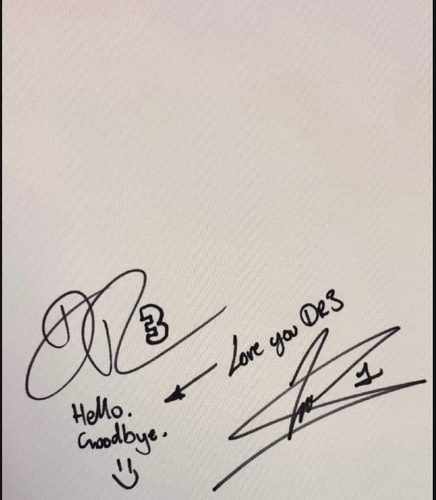 3
Love you DR3
1
Hello.
Goodbye.